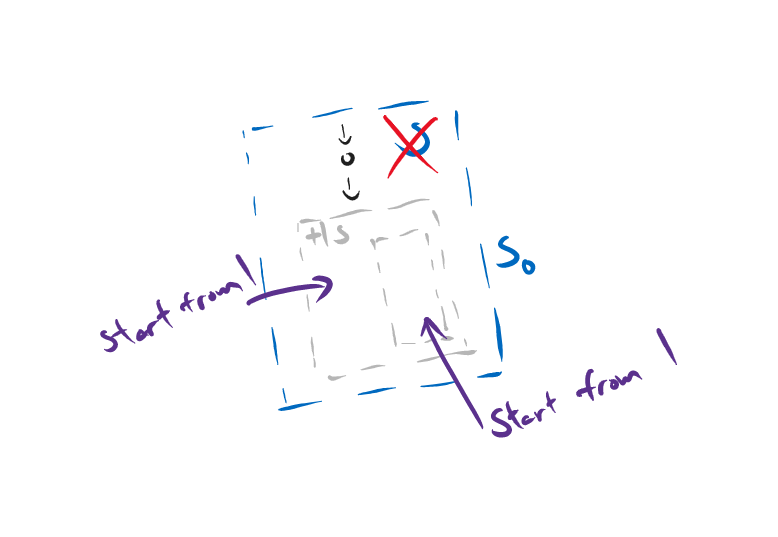 S
+1s
S₀
Start from 1
Start from 1